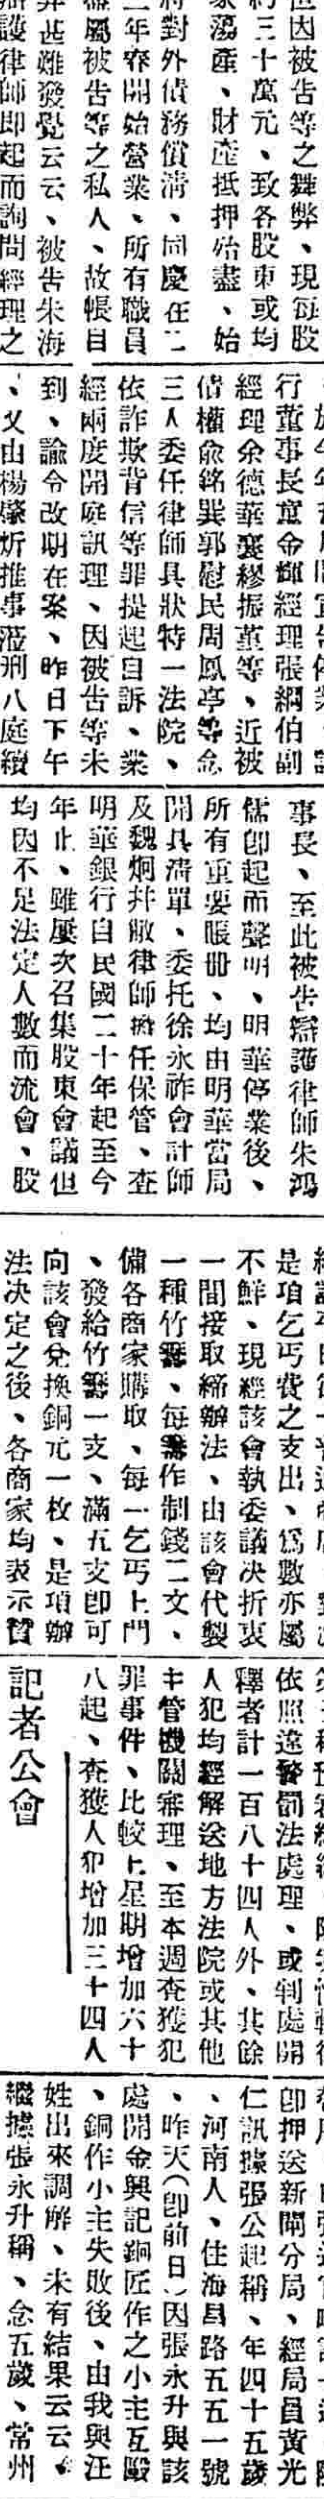 因被告等之舞弊、現每股
三十萬元、致各股東或均
蕩產、財產抵押殆盡、始
對外債務償清、同慶在二
年春開始營業、所有職員
屬被告等之私人、故帳目
甚難發覺云云、被告朱海
護律師即起而詢問經理之
行董事長童金輝經理張絅伯副
經理余德華襲繆振堇等、近被
債權俞銘巽郭慰民周鳳亭等念
三人委任律師具狀特一法院、
依詐欺背信等罪提起自訴、業
經兩度開庭訊理、因被告等未
到、諭令改期在案、昨日下午
、又由楊肇炘推事蒞刑八庭續
事長、至此被告辯護律師朱鴻
儒即起而聲明、明華停業後、
所有重要賬冊、均由明華當局
開具清單、委托徐永祚會計師
及魏炯井敝律師擔任保管、查
明華銀行自民國二十年起至今
年止、雖屢次召集股東會議但
均因不足法定人數而流會、股
是項乞丐費之支出、爲數亦屬
不鮮、現經該會執委議决折衷
一間接取締辦法、由該會代製
一種竹籌、每籌作制錢二文、
備各商家購取、每一乞丐上門
、發給竹籌一支、滿五支即可
向該會兌換銅元一枚、是項辦
法决定之後、各商家均表示贊
依照違警罰法處理、或判處開
釋者計一百八十四人外、其餘
人犯均經解送地方法院或其他
主管機關審理、至本週查獲犯
罪事件、比較上星期增加六十
八起、查獲人犯增加三十四人
記者公會
卽押送新閘分局、經局員黃光
仁訊據張公起稱、年四十五歲
、河南人、住海昌路五五一號
、昨天(卽前日)因張永升與該
處開金興記銅匠作之小主互毆
、銅作小主失敗後、由我與汪
姓出來調解、未有結果云云、
繼據張永升稱、念五歲、常州